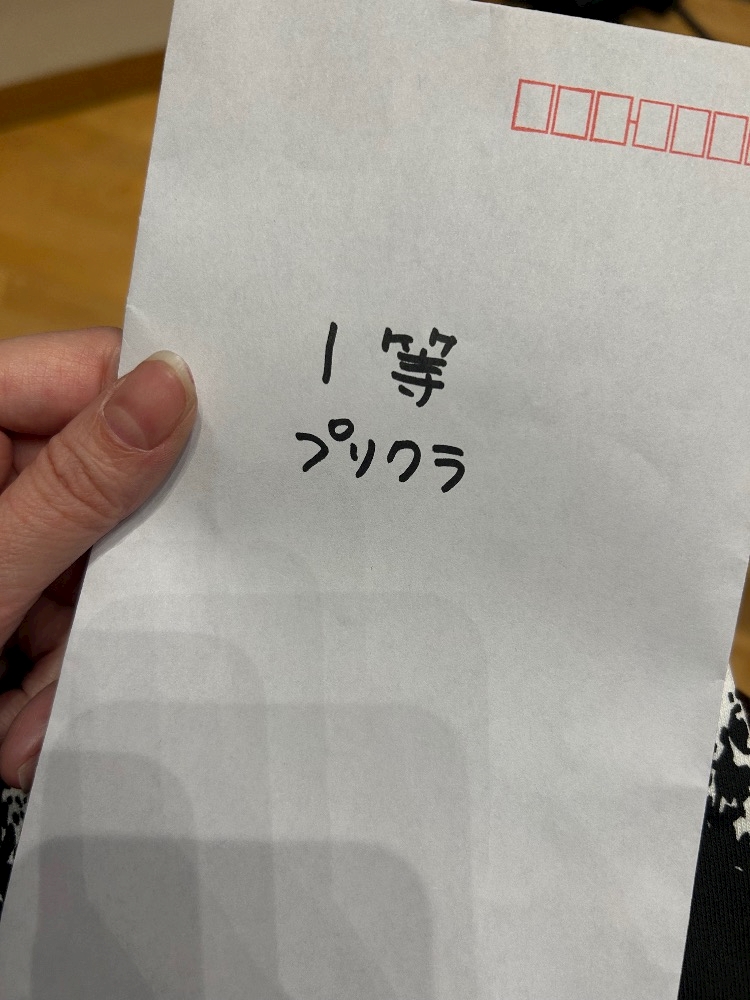 1等
プリクラ